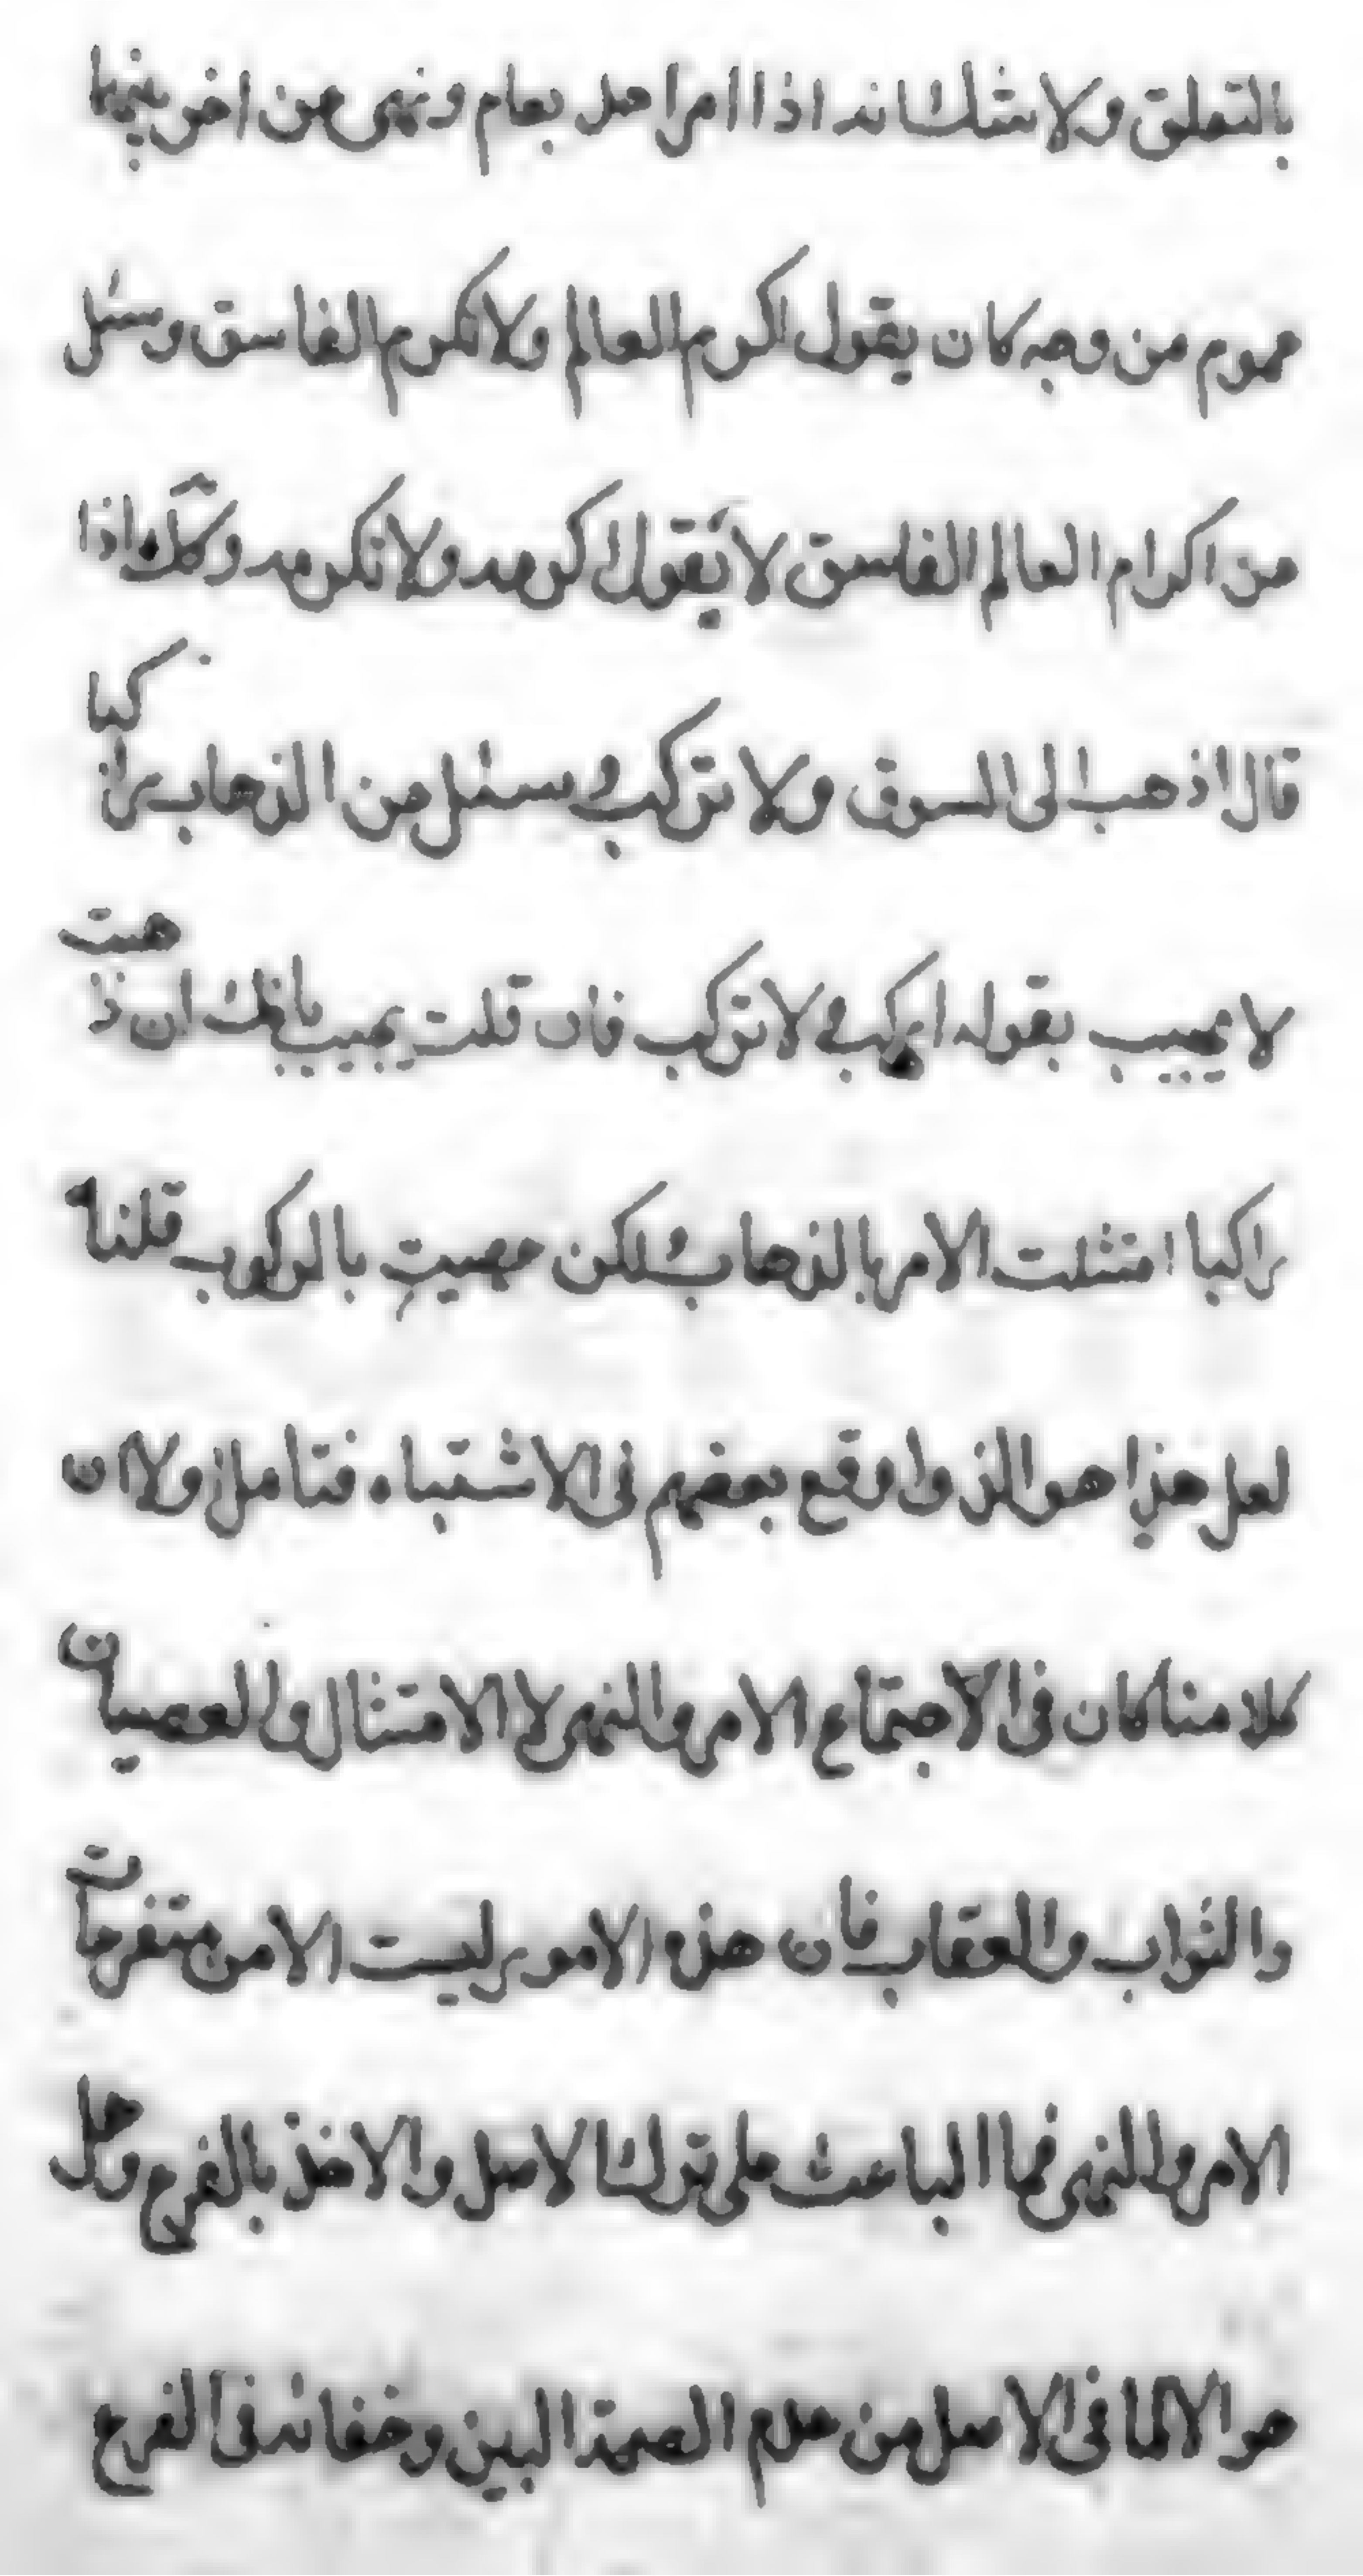 بالتعلق ولا شك انه اذا امر احد بعام ونهى عن اخر بينهما
عموم من وجه كان يقول اكرم العالم ولا تكرم الفاسق وسئل
من اكرام العالم الفاسق لا يقول اكرمه ولا تكرمه وكك اذا
قال اذهب الى السوق ولا تركب وسئل من الذهاب راكبا
لا يجيب بقوله اركب ولا تركب فان قلت يجيب بانك ان ذهبت
راكبا امتثلت الامر بالذهاب ولكن عصيت بالركوب قلنا
لعل هذا هو الذي اوقع بعضهم في الاشتباه فتامل اولا ان
كلامنا كان في الاجتماع الامر والنهى لا الامتثال والعصيان
والثواب والعقاب فان هذه الامور ليست الا من متفرعات
الامر والنهى فما الباعث على ترك الاصل والاخذ بالفرع وهل
هو الا لما في الاصل من عدم الصحة البين وخفائه في الفرع